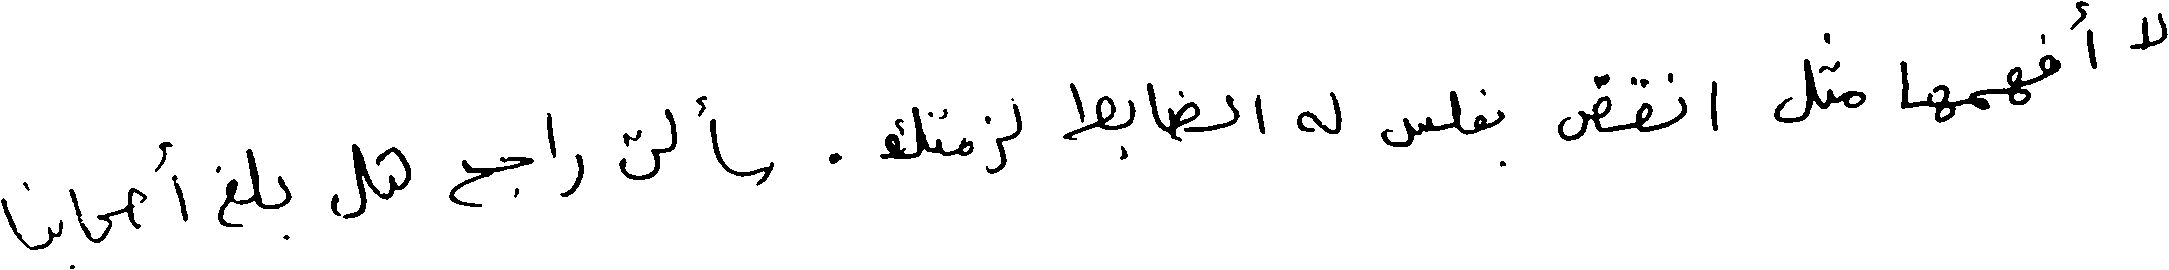 لا أفهمها مثل انقض بفلس له الضابط لزمتك . سألت راجح هل بلغ أصحابنا